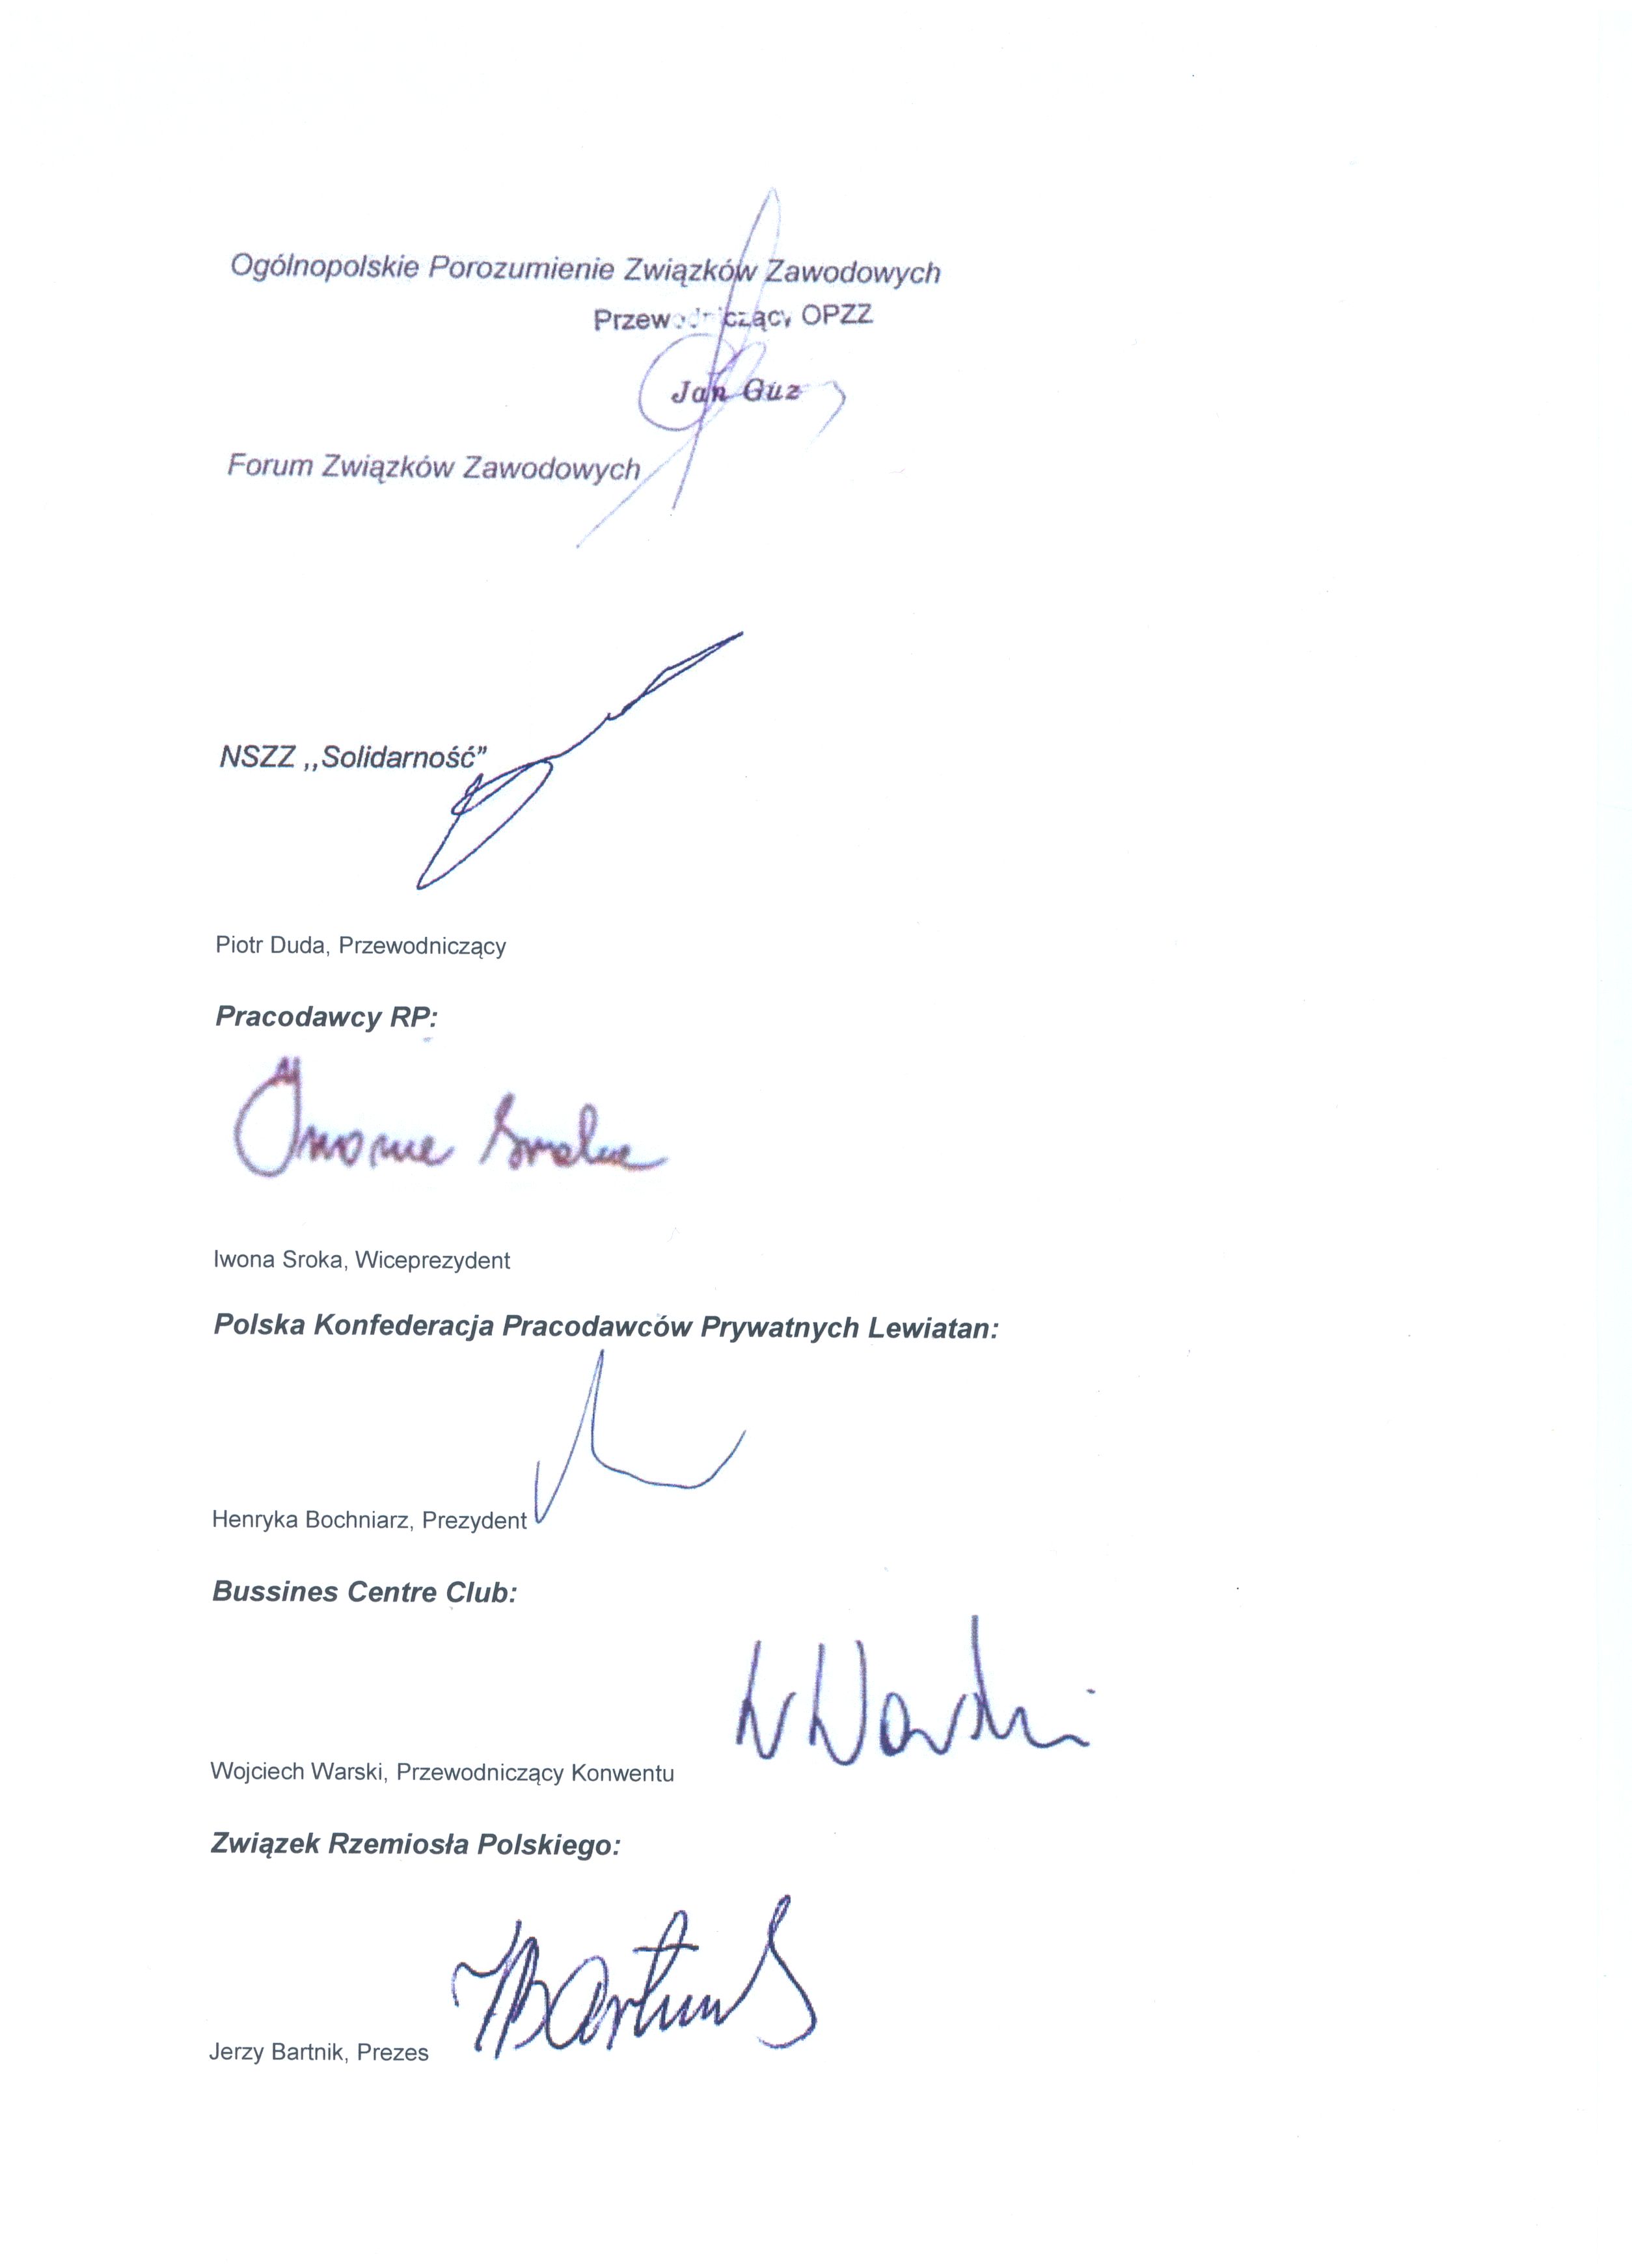 Ogólnopolskie Porozumienie Związków Zawodowych
Przewodniczący OPZZ
Jan Guz
Forum Związków Zawodowych
NSZZ ,,Solidarność”
Piotr Duda, Przewodniczący
Pracodawcy RP:
Iwona Sroka
Iwona Sroka, Wiceprezydent
Polska Konfederacja Pracodawców Prywatnych Lewiatan:
Henryka Bochniarz, Prezydent
Bussines Centre Club:
W Warski
Wojciech Warski, Przewodniczący Konwentu
Związek Rzemiosła Polskiego:
JBartnik
Jerzy Bartnik, Prezes